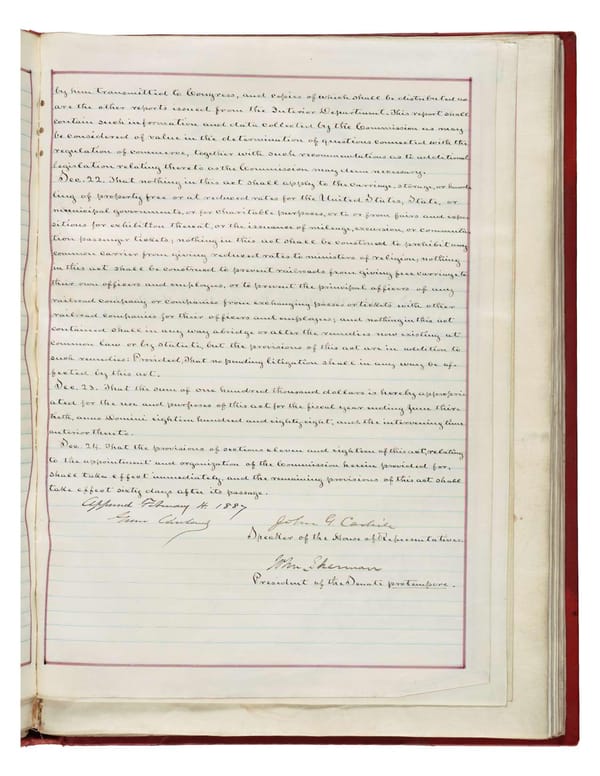 by him transmitted to Congress, and copies of which shall be distributed as
are the other reports issued from the Interior Department. This report shall
contain such information and data collected by the Commission as may
be considered of value in the determination of questions connected with the
regulation of commerce, together with such recommendations as to additional
legislation relating thereto as the Commission may deem necessary.
Sec. 22. That nothing in this act shall apply to the carriage, storage, or hand-
ling of property free or at reduced rates for the United States, State, or
municipal governments, or for charitable purposes, or to or from fairs and expo-
sitions for exhibition thereat, or the issuance of mileage, excursion, or commuta-
tion passenger tickets; nothing in this act shall be construed to prohibit any
common carrier from giving reduced rates to ministers of religion; nothing
in this act shall be construed to prevent railroads from giving free carriage to
their own officers and employees, or to prevent the principal officers of any
railroad company or companies from exchanging passes or tickets with other
railroad companies for their officers and employees; and nothing in this act
contained shall in any way abridge or alter the remedies now existing at
common law or by statute, but the provisions of this act are in addition to
such remedies: Provided, That no pending litigation shall in any way be af-
fected by this act.
Sec. 23. That the sum of one hundred thousand dollars is hereby appropri-
ated for the use and purposes of this act for the fiscal year ending June thir-
tieth, anno Domini eighteen hundred and eighty eight, and the intervening time
anterior thereto.
Sec. 24. That the provisions of sections eleven and eighteen of this act, relating
to the appointment and organization of the Commission herein provided for,
shall take effect immediately, and the remaining provisions of this act shall
take effect sixty days after its passage.
Approved February 4. 1887
Grover Cleveland
John G Carlisle
Speaker of the House of Representatives.
John Sherman
President of the Senate pro tempore.